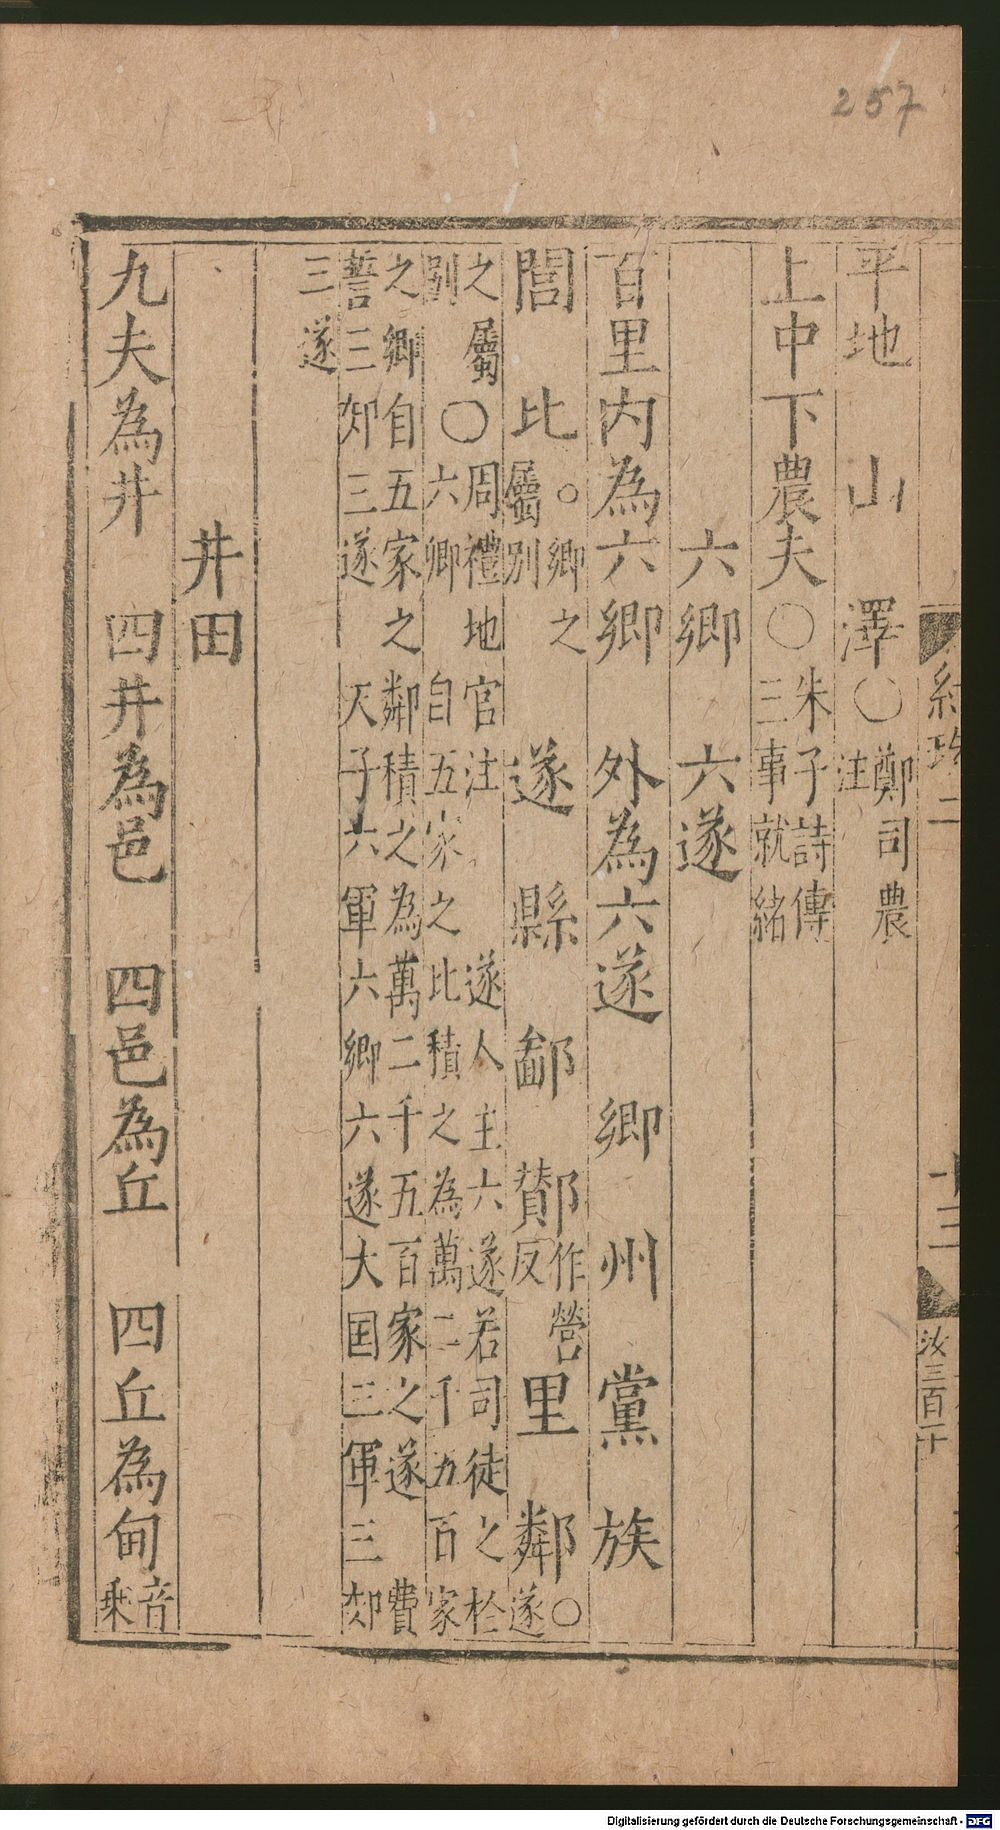 十三
汝三百十
平地 山 澤 ○ 鄭司農注
上中下農夫 ○ 朱子詩傳三事就緒
六鄉 六遂
百里内為六鄉 外為六遂 鄉 州 黨 族
閭 比 。鄉之屬別 遂 縣 鄙 酇 作營反 里 鄰 ○遂
之屬 ○ 周禮地官注 遂人主六遂若司徒之於
別 六鄉 自五家之比積之為萬二千五百家
之鄉自五家之鄰積之為萬二千五百家之遂 費
誓三郊三遂 天子六軍六鄉六遂大囯三軍三郊
三遂
井田
九夫為井 四井為邑 四邑為丘 四丘為甸 音乘
257
Digitalisierung gefördert durch die Deutsche Forschungsgemeinschaft - DFG